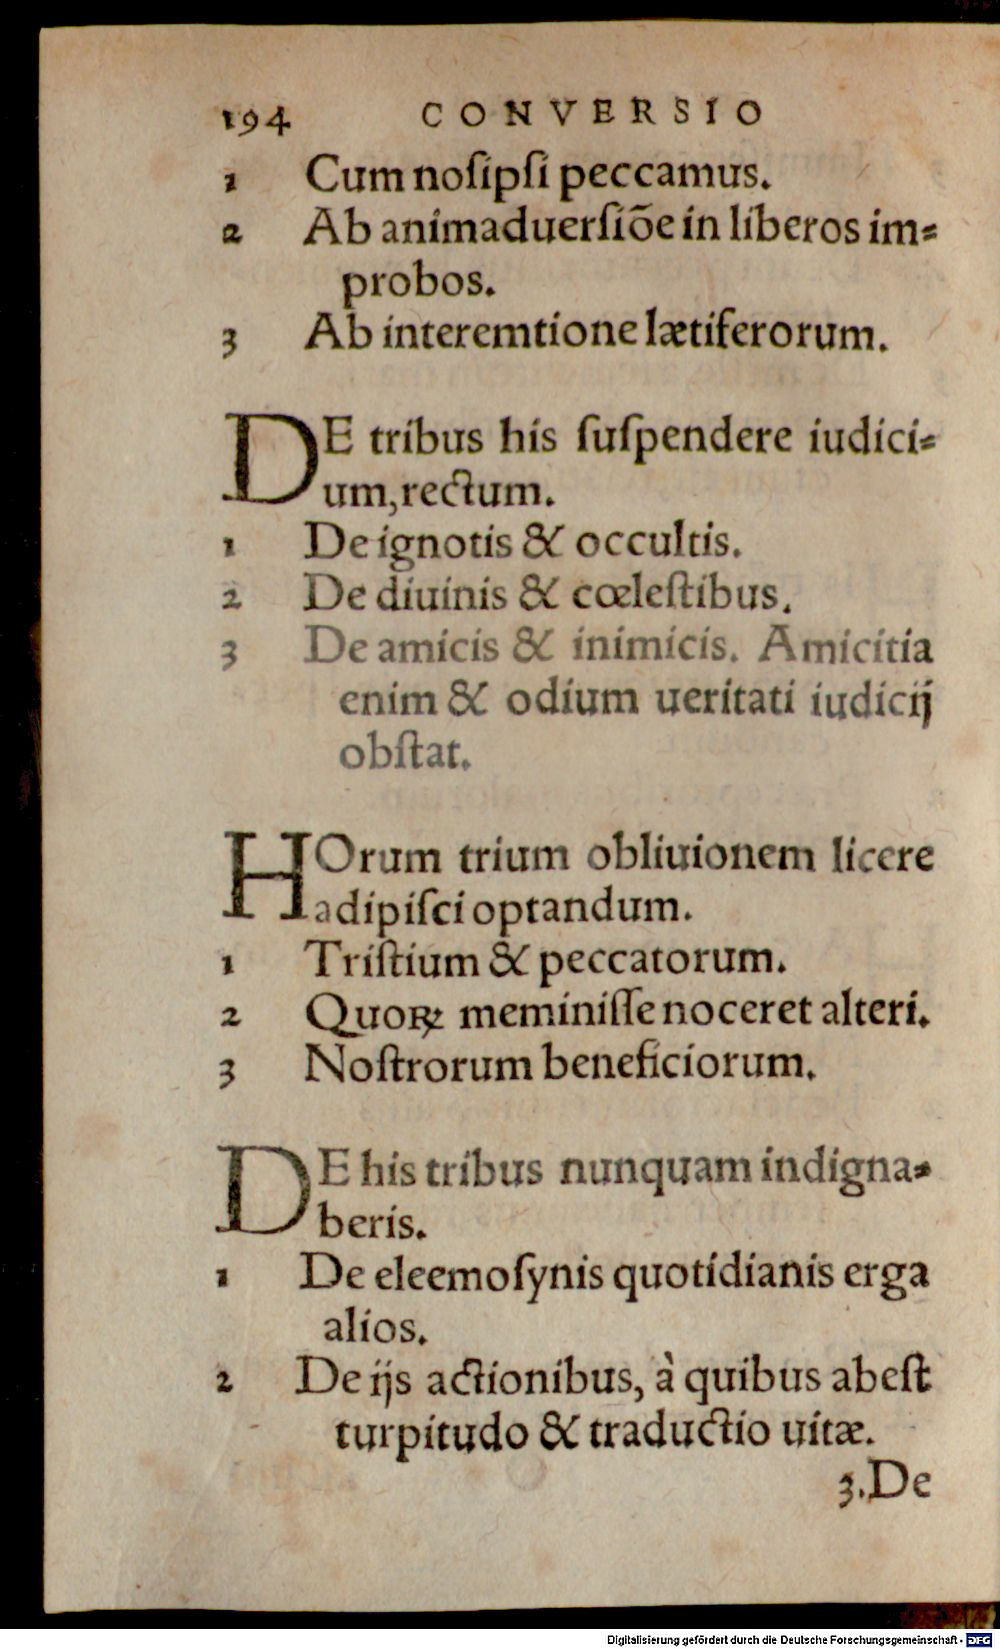 194 CONVERSIO
1 Cum noſipſi peccamus.
2 Ab animaduerſiõe in liberos im⸗
probos.
3 Ab interemtione lætiferorum.
DE tribus his ſuſpendere iudici⸗
um, rectum.
1 De ignotis & occultis.
2 De diuinis & cœleſtibus.
3 De amicis & inimicis. Amicitia
enim & odium ueritati iudicij
obſtat.
HOrum trium obliuionem licere
adipiſci optandum.
1 Triſtium & peccatorum.
2 Quoꝝ meminiſſe noceret alteri.
3 Noſtrorum beneficiorum.
DE his tribus nunquam indigna⸗
beris.
1 De eleemoſynis quotidianis erga
alios.
2 De ijs actionibus, à quibus abeſt
turpitudo & traductio uitæ.
3. De
Digitalisierung gefördert durch die Deutsche Forschungsgemeinschaft - DFG